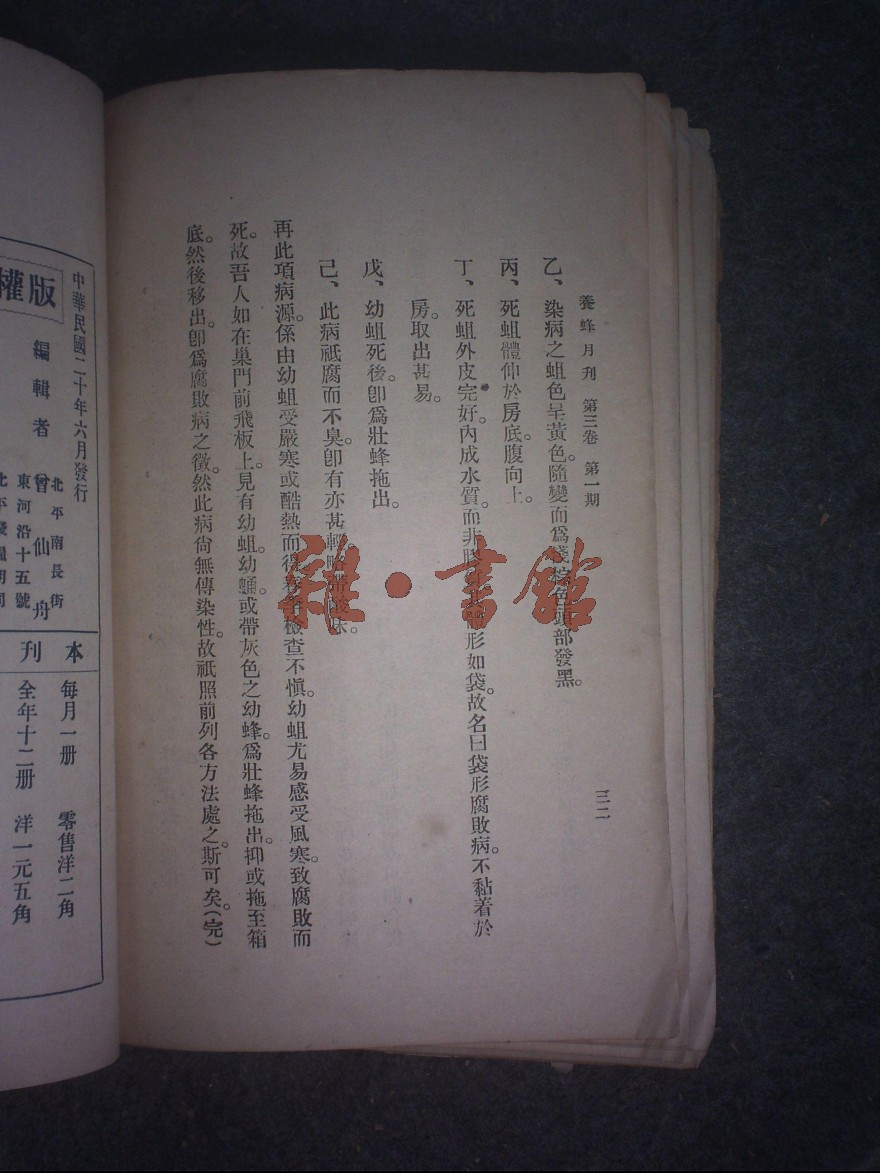 養蜂月刊 第三卷 第一期
三二
乙、染病之蛆色呈黃色。隨變而爲淺棕色。頭部發黑。
丙、死蛆體仰於房底。腹向上。
丁、死蛆外皮完好。內成水質。而非膠 形如袋。故名曰袋形腐敗病。不黏着於
房。取出甚易。
戊、幼蛆死後。卽爲壯蜂拖出。
己、此病祇腐而不臭。卽有亦甚輕。略帶酸味。
再此項病源。係由幼蛆受嚴寒或酷熱而得。春季檢查不愼。幼蛆尤易感受風寒。致腐敗而
死。故吾人如在巢門前飛板上。見有幼蛆。幼蛹。或帶灰色之幼蜂。爲壯蜂拖出。抑或拖至箱
底。然後移出。卽爲腐敗病之徵。然此病尙無傳染性。故祇照前列各方法處之。斯可矣。(完)
雜·書館
中華民國二十年六月發行
版權
編輯者 曾仙舟
北平南長街
東河沿十五號
本刊
每月一册 零售洋二角
全年十二册 洋一元五角